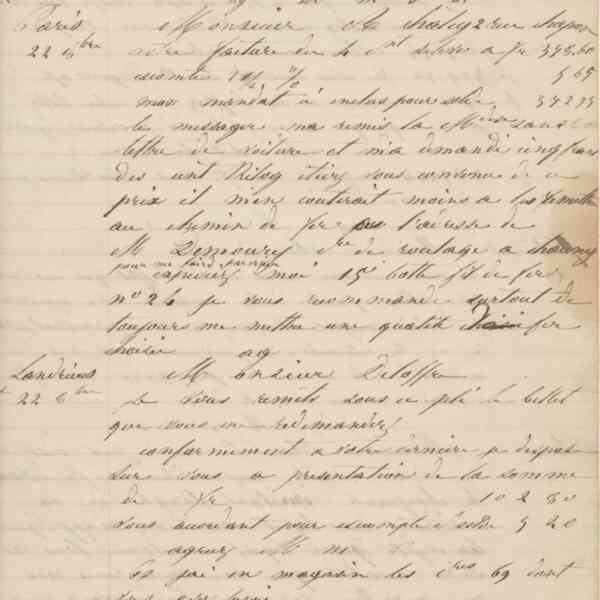 Paris Monsieur A Chaluy 2 rue Chapon
22 xbre votre facture du 4 Ct s'élève a fr 378.60
escompte 1 ½ % 5 65
mon mandat ci inclus pour solde 372 75
le messager ma remis la Mdise sans
lettre de voiture et m'a demandé cinq francs
des cent Kilog étiez vous convenu de ce
prix il m'en couterait moins a les remettre
au chemin de fer a l'adresse de
M Demoury de roulage a Chauny
pour me faire parvenir
expediez moi 15 botte fil de fer
no 26 je vous recommande surtout de
toujours me mettre une qualité fer
choisie ag
Landrieux Monsieur Deloffre
22 xbre Je vous remets sous ce pli le billet
que vous me redemandez
conformement a votre dernière je dispose
sur vous a presentation de la somme
de fr 102 80
vous accordant pour escompte et solde 5 20
agreez M m
en magasin les 69 dont